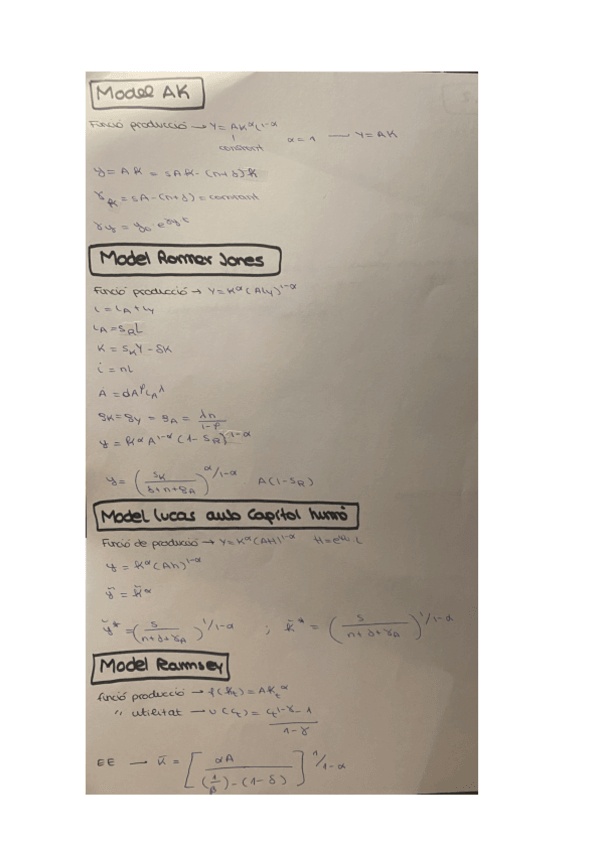 Model AK
Funció producció → Y = AK^α L^1-α   α = 1 — Y = AK
constant
y = AK = sAK - (n+δ)k
γk = sA - (n+δ) = constant
γy = y0 · e^γyt
Model Romer Jones
Funció producció → Y = K^α (ALy)^1-α
L = LA + Ly
LA = sR L
K̇ = sK Y - δK
L̇ = nL
Ȧ = dA^φ LA^λ
gK = gy = gA = λn / 1-φ
y = k^α A^1-α (1 - SR)^1-α
y = (sK / δ+n+gA)^α/1-α   A(1-SR)
Model Lucas amb Capitol humà
Funció de producció → Y = K^α (AH)^1-α   H = e^ψu · L
y = k^α (Ah)^1-α
ỹ = k̃^α
ỹ* = (s / n+δ+γA)^1/1-α ; k̃* = (s / n+δ+γA)^1/1-α
Model Ramsey
funció producció → f(kt) = AKt^α
" utilitat → U(Ct) = Ct^1-γ - 1 / 1-γ
EE → k̄ = [αA / (1/β) - (1-δ)]^1/1-α